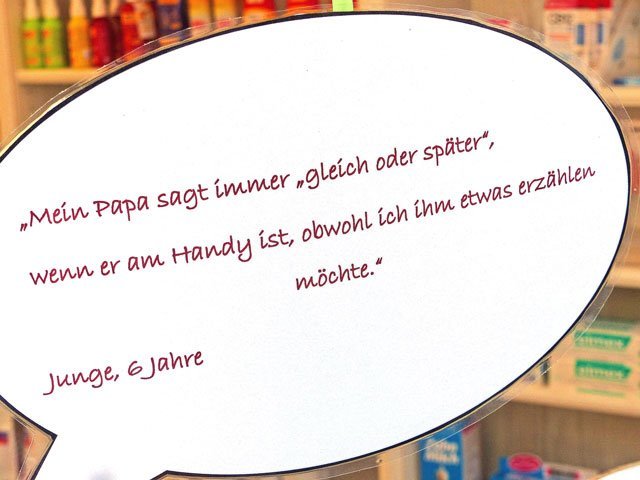 „Mein Papa sagt immer „gleich oder später“,
wenn er am Handy ist, obwohl ich ihm etwas erzählen
möchte.“
Junge, 6 Jahre